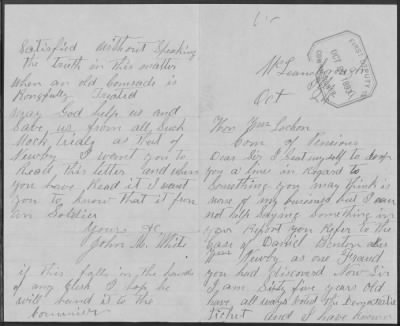 McLeansboro Ills
Oct
FIRST DEPUTY
OCT
1893
Hon Wm Lochen
Com of Pensions
Dear Sir I Seat myself to drop
you a line in Regard to
Something you may think is
none of my buisness but I can
not help Saying Something in
your Report you Refer to the
Case of Daniel Benton alies
Wm Newby as one Fraud
you had discovered Now Sir
I am Sixty five years old
have all ways voted the Democratic
Ticket and I have known
Satisfied Without Speaking
the truth in this matter
when an old Comrade is
Rongfully Treated
may God help us and
Save us from all Such
Mock Trials as that of
Newby I want you to
Read this letter and when
you have Read it I want
you to know that it is from
an Soldier
Yours &c
John M. White
if this falls in the hands
of any Clerk I hope he
will hand it to the